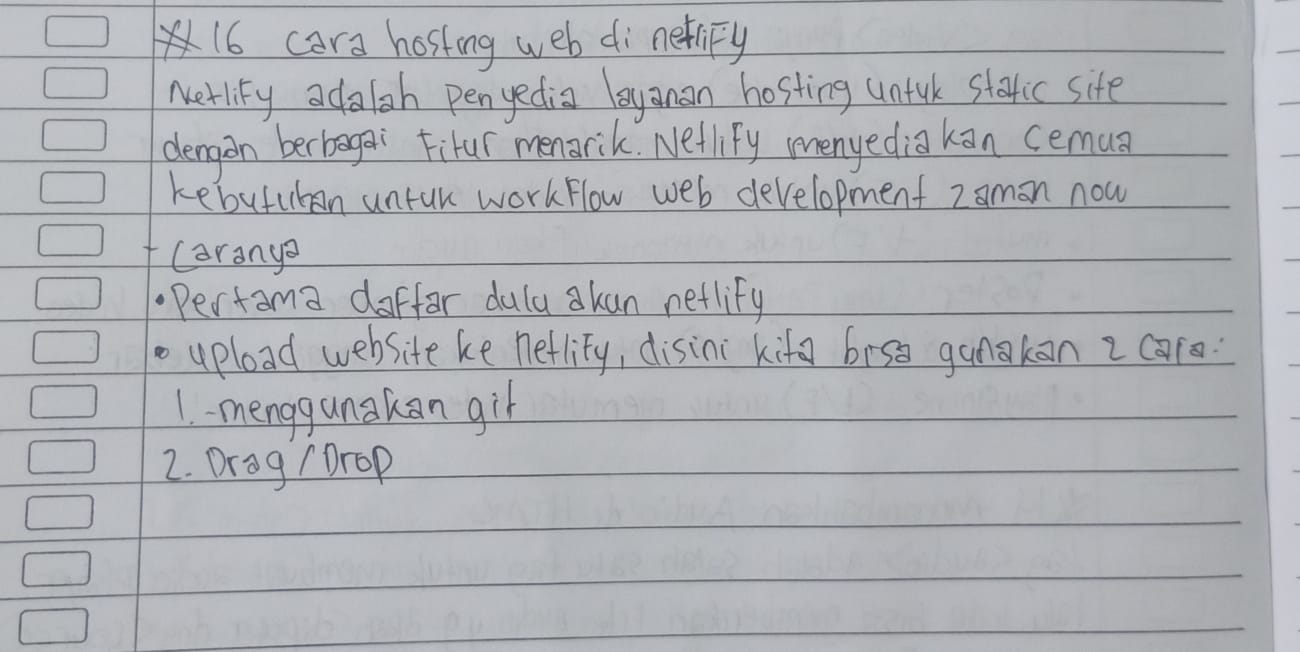 #16 cara hosting web di netlify
Netlify adalah penyedia layanan hosting untuk static site
dengan berbagai fitur menarik. Netlify menyediakan cemua
kebutuhan untuk workflow web development zaman now
- Caranya
• Pertama daftar dulu akun netlify
• upload website ke netlify, disini kita bisa gunakan 2 cara:
1. menggunakan git
2. Drag / Drop